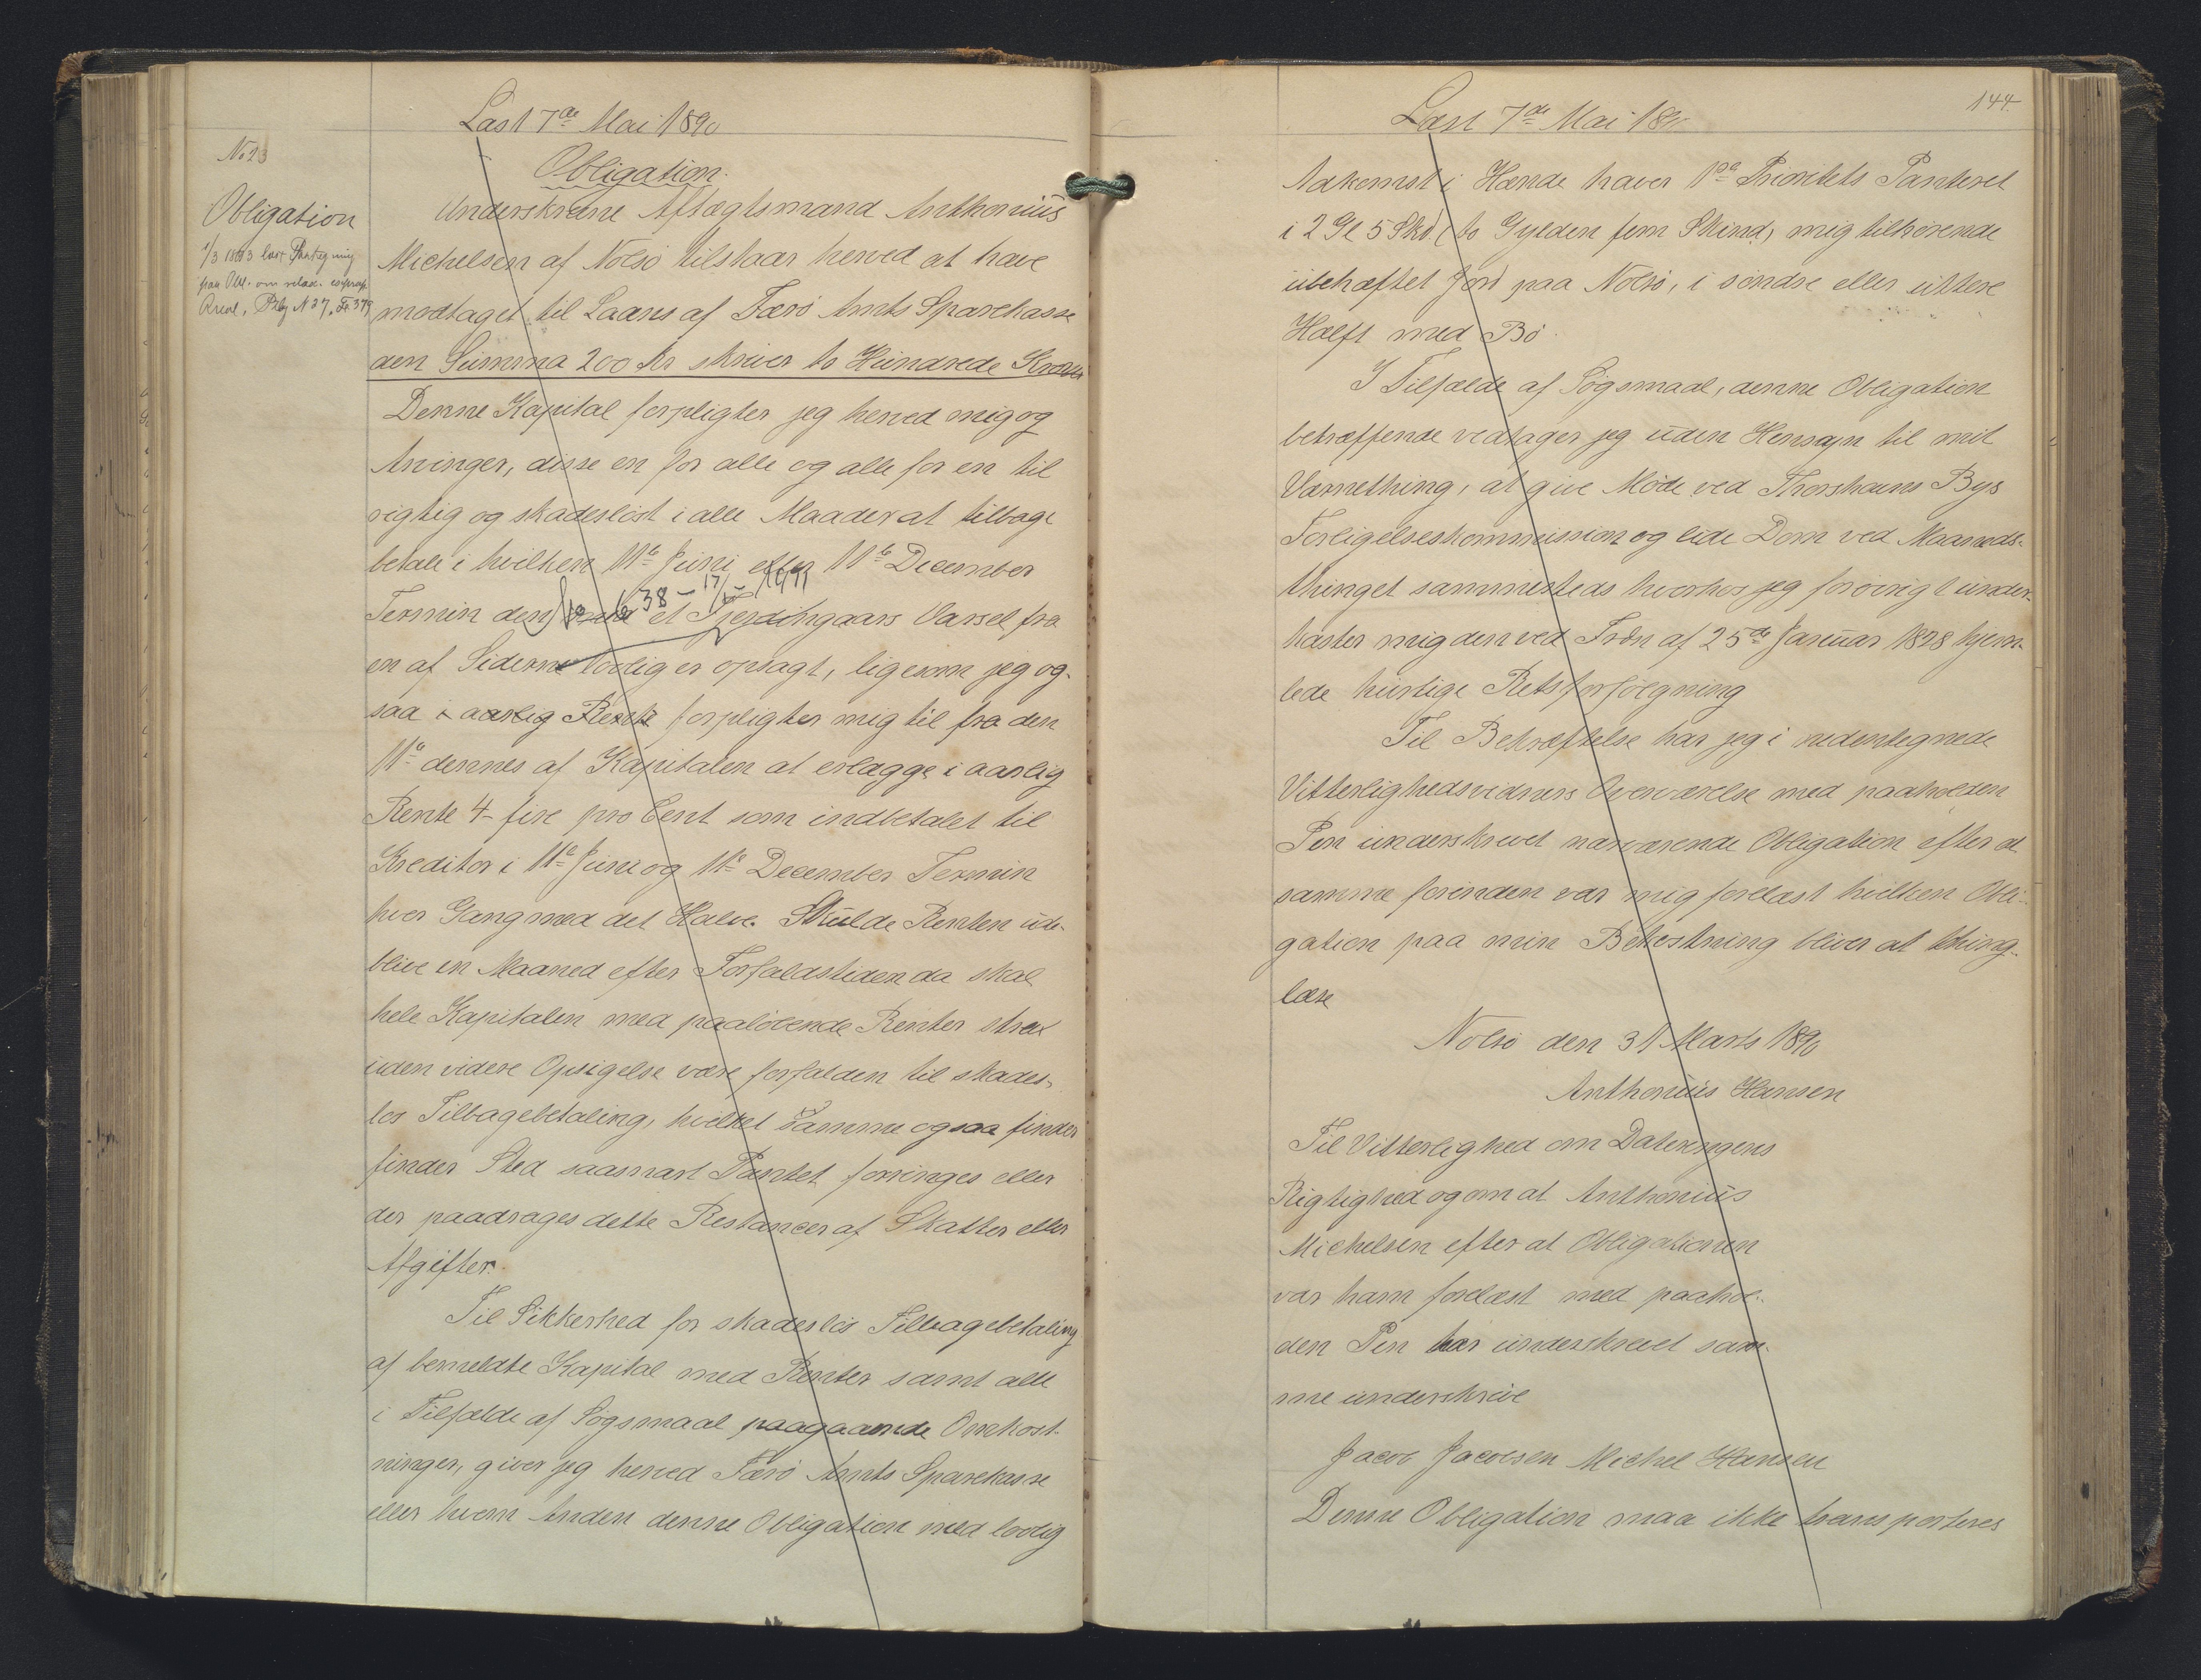 Læst 7de Mai 1890
No 23
Obligation.
Obligation
Underskrevne Aftægtsmand Anthonius
Michelsen af Nolsö tilstaar herved at have
modtaget til Laans af Færö Amts Sparekasse
den Summa 200 Kr skriver to Hundrede Kroner
Denne Kapital forpligter jeg herved mig og
Arvinger, disse en for alle og alle for en til
rigtig og skadeslöst i alle Maader at tilbage
betale i hvilken 11te Juni eller 11te December
Termin den et Fjerdingaars Varsel fra
en af Siderne lovlig er opsagt, ligesom jeg og-
saa i aarlig Rente forpligter mig til fra den
11te dennes af Kapitalen at erlægge i aarlig
Rente 4 - fire pro Cent som indbetalet til
Kreditor i 11te Juni og 11te December Termin
hver Gang med det Halve. Skulde Renten ude-
blive en Maaned efter Forfaldstiden da skal
hele Kapitalen med paalöbende Renter strax
uden videre Opsigelse være forfalden til skades-
lös Tilbagebetaling, hvilket Samme ogsaa finder
finder Sted saasnart Pantet forringes eller
der paadrages dette Restancer af Skatter eller
Afgifter.
Til Sikkerhed for skadeslös Tilbagebetaling
af bemeldte Kapital med Renter samt alle
i Tilfælde af Sögsmaal paagaaende Omkost-
ninger, giver jeg herved Færö Amts Sparekasse
eller hvem Anden denne Obligation med lovlig
144.
Læst 7de Mai 18
Adkomst i Hænde haver 1ste Prioritets Panteret
i 2 Gl 5 Skd (to Gylden fem Skind) mig tilhörende
ubehæftet Jord paa Nolsö, i söndre eller uttere
Halft med Bö.
I Tilfælde af Sögsmaal, denne Obligation
betræffende vedtager jeg uden Hensyn til mit
Værnething, at give Möde ved Thorshavns Bys
Forligelseskommission og lide Dom ved Maaneds-
thinget sammesteds hvorhos jeg forövrigt under-
kaster mig den ved Frdn af 25de Januar 1828 hjem-
lede hurtige Retsforfölgning
Til Bekræftelse har jeg i nedentegnede
Vitterlighedsvidners Overværelse med paaholden
Pen underskrevet nærværende Obligation efter at
samme forinden var mig forelæst hvilken Obli-
gation paa min Bekostning bliver at thing-
læse
Nolsö den 31 Marts 1890
Anthonius Hansen
Til Vitterlighed om Dateringens
Rigtighed og om at Anthonius
Michelsen efter at Obligationen
var ham forelæst med paahol-
den Pen har underskrevet sam-
me underskrive
Jacob Jacobsen Michel Hansen
Denne Obligation maa ikke transporteres